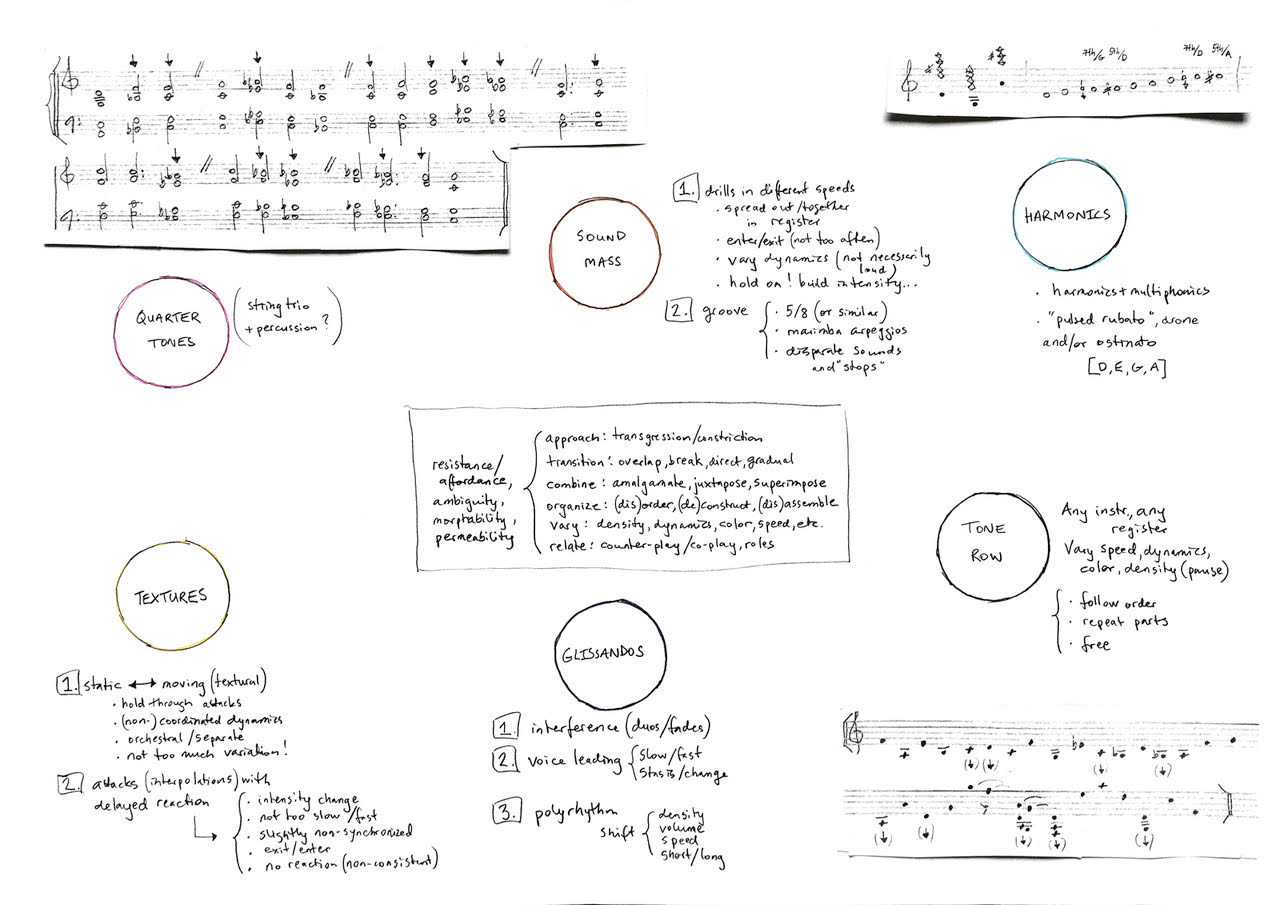 7th/G 5th/D
7th/D 5th/A
QUARTER
TONES
(string trio
+ percussion?)
SOUND
MASS
1. drills in different speeds
· spread out/together
in register
· enter/exit (not too often)
· vary dynamics (not necessarily
loud)
· hold on! build intensity...
2. groove
· 5/8 (or similar)
· marimba arpeggios
· disparate sounds
and "stops"
HARMONICS
· harmonics + multiphonics
· "pulsed rubato", drone
and/or ostinato
[D, E, G, A]
resistance/
affordance,
ambiguity,
morphability,
permeability
approach: transgression/constriction
transition: overlap, break, direct, gradual
combine: amalgamate, juxtapose, superimpose
organize: (dis)order, (de)construct, (dis)assemble
vary: density, dynamics, color, speed, etc.
relate: counter-play/co-play, roles
TEXTURES
1. static ↔ moving (textural)
· hold through attacks
· (non-)coordinated dynamics
· orchestral/separate
· not too much variation!
2. attacks (interpolations) with
delayed reaction
· intensity change
· not too slow/fast
· slightly non-synchronized
· exit/enter
· no reaction (non-consistent)
GLISSANDOS
1. interference (duos/fades)
2. voice leading
slow/fast
stasis/change
3. polyrhythm
shift
density
volume
speed
short/long
TONE
ROW
Any instr., any
register
Vary speed, dynamics,
color, density (pause)
· follow order
· repeat parts
· free